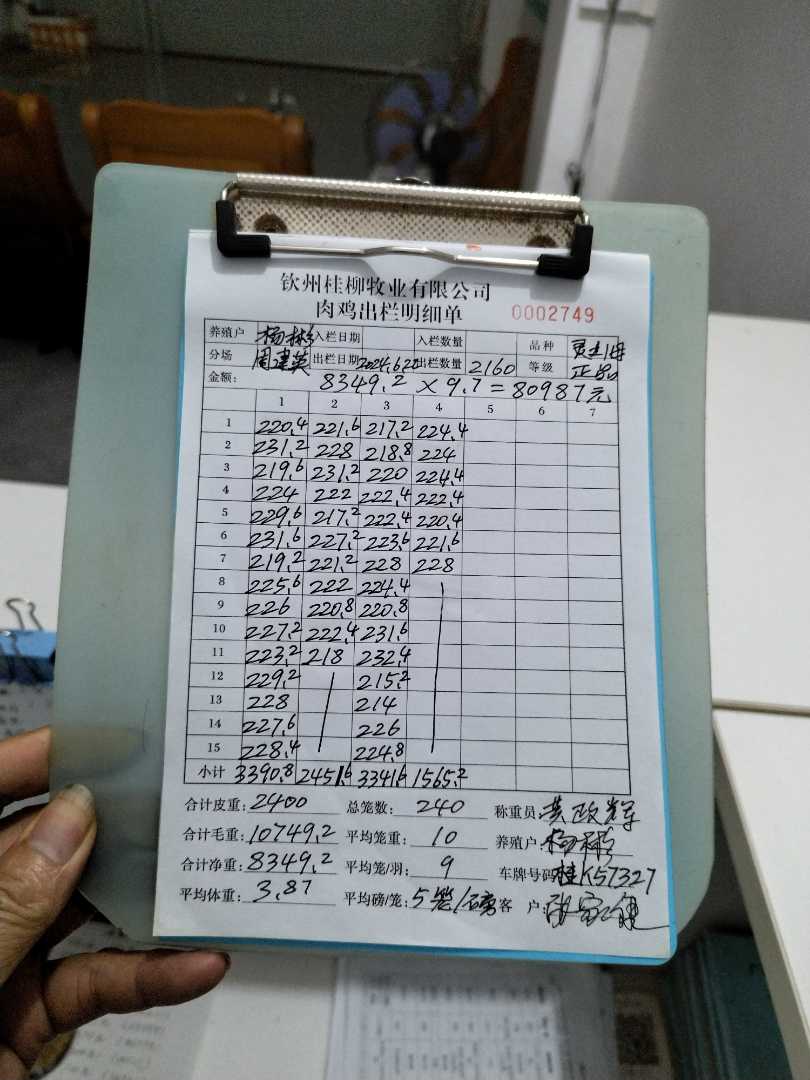 钦州桂柳牧业有限公司
肉鸡出栏明细单 0002749
养殖户 杨彬 入栏日期 入栏数量 品种 灵土2母
分场 周建英 出栏日期 2024.6.22 出栏数量 2160 等级 正品
金额: 8349.2 × 9.7 = 80987元
1 2 3 4 5 6 7
1 220.4 221.6 217.2 224.4
2 231.2 228 218.8 224
3 219.6 231.2 220 224.4
4 224 222 222.4 222.4
5 229.6 217.2 222.4 220.4
6 231.6 227.2 223.6 221.6
7 219.2 221.2 228 228
8 225.6 222 224.4
9 226 220.8 220.8
10 227.2 222.4 231.6
11 223.2 218 232.4
12 229.2 215.2
13 228 214
14 227.6 226
15 228.4 224.8
小计 3390.8 2451.6 3341.6 1565.2
合计皮重: 2400 总笼数: 240 称重员: 黄政辉
合计毛重: 10749.2 平均笼重: 10 养殖户: 杨彬
合计净重: 8349.2 平均笼/羽: 9 车牌号码: 桂K57327
平均体重: 3.87 平均磅/笼: 5笼/磅 客户: